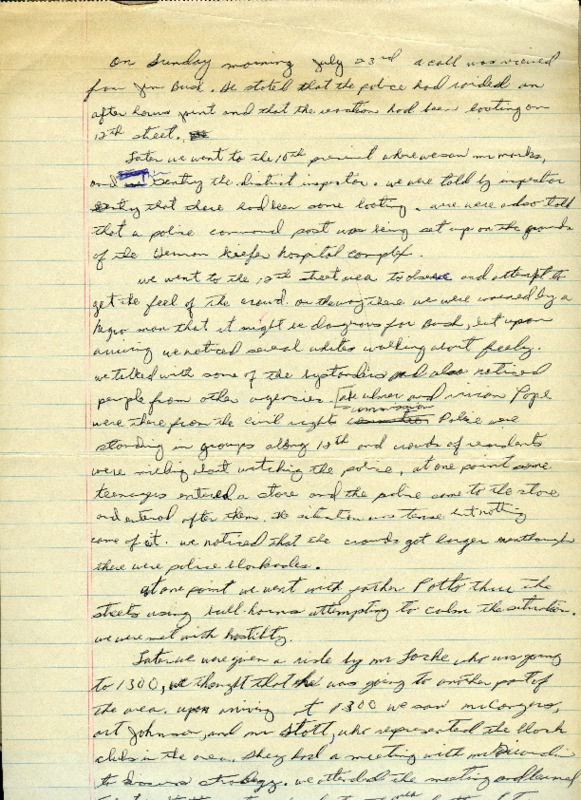 On Sunday morning July 23rd a call was recieved
from Jim Bush. He stated that the police had raided an
after hours joint and that the reaction had been looting on
12th street.
Later we went to the 10th precinct where we saw mr marks,
and Sentry the district inspector. we were told by inspector
Sentry that there had been some looting. we were also told
that a police command post was being set up on the grounds
of the Herman Kiefer hospital complex.
we went to the 12th street area to observe and attempt to
get the feel of the crowd. on the way there we were warned by a
Negro man that it might be dangerous for Bush, but upon
arriving we noticed several whites walking about freely.
we talked with some of the bystanders and also noticed
people from other agencies. and Pope
were there from the civil rights commission Police were
standing in groups along 12th and crowds of residents
were milling about watching the police, at one point some
teenagers entered a store and the police came to the store
and entered after them. the situation was tense but nothing
came of it. we noticed that the crowds got larger even though
there were police blockades.
at one point we went with father Potts thru the
steets using bull horns attempting to calm the situation.
we were met with hostility.
Later we were given a ride by mr Locke who was going
to 1300, we thought that he was going to another part of
the area. upon arriving at 1300 we saw
art Johnson, and mr Stott, who represented the block
clubs in the area. they had a meeting with mr
to discuss strategy. we attended the meeting and learned